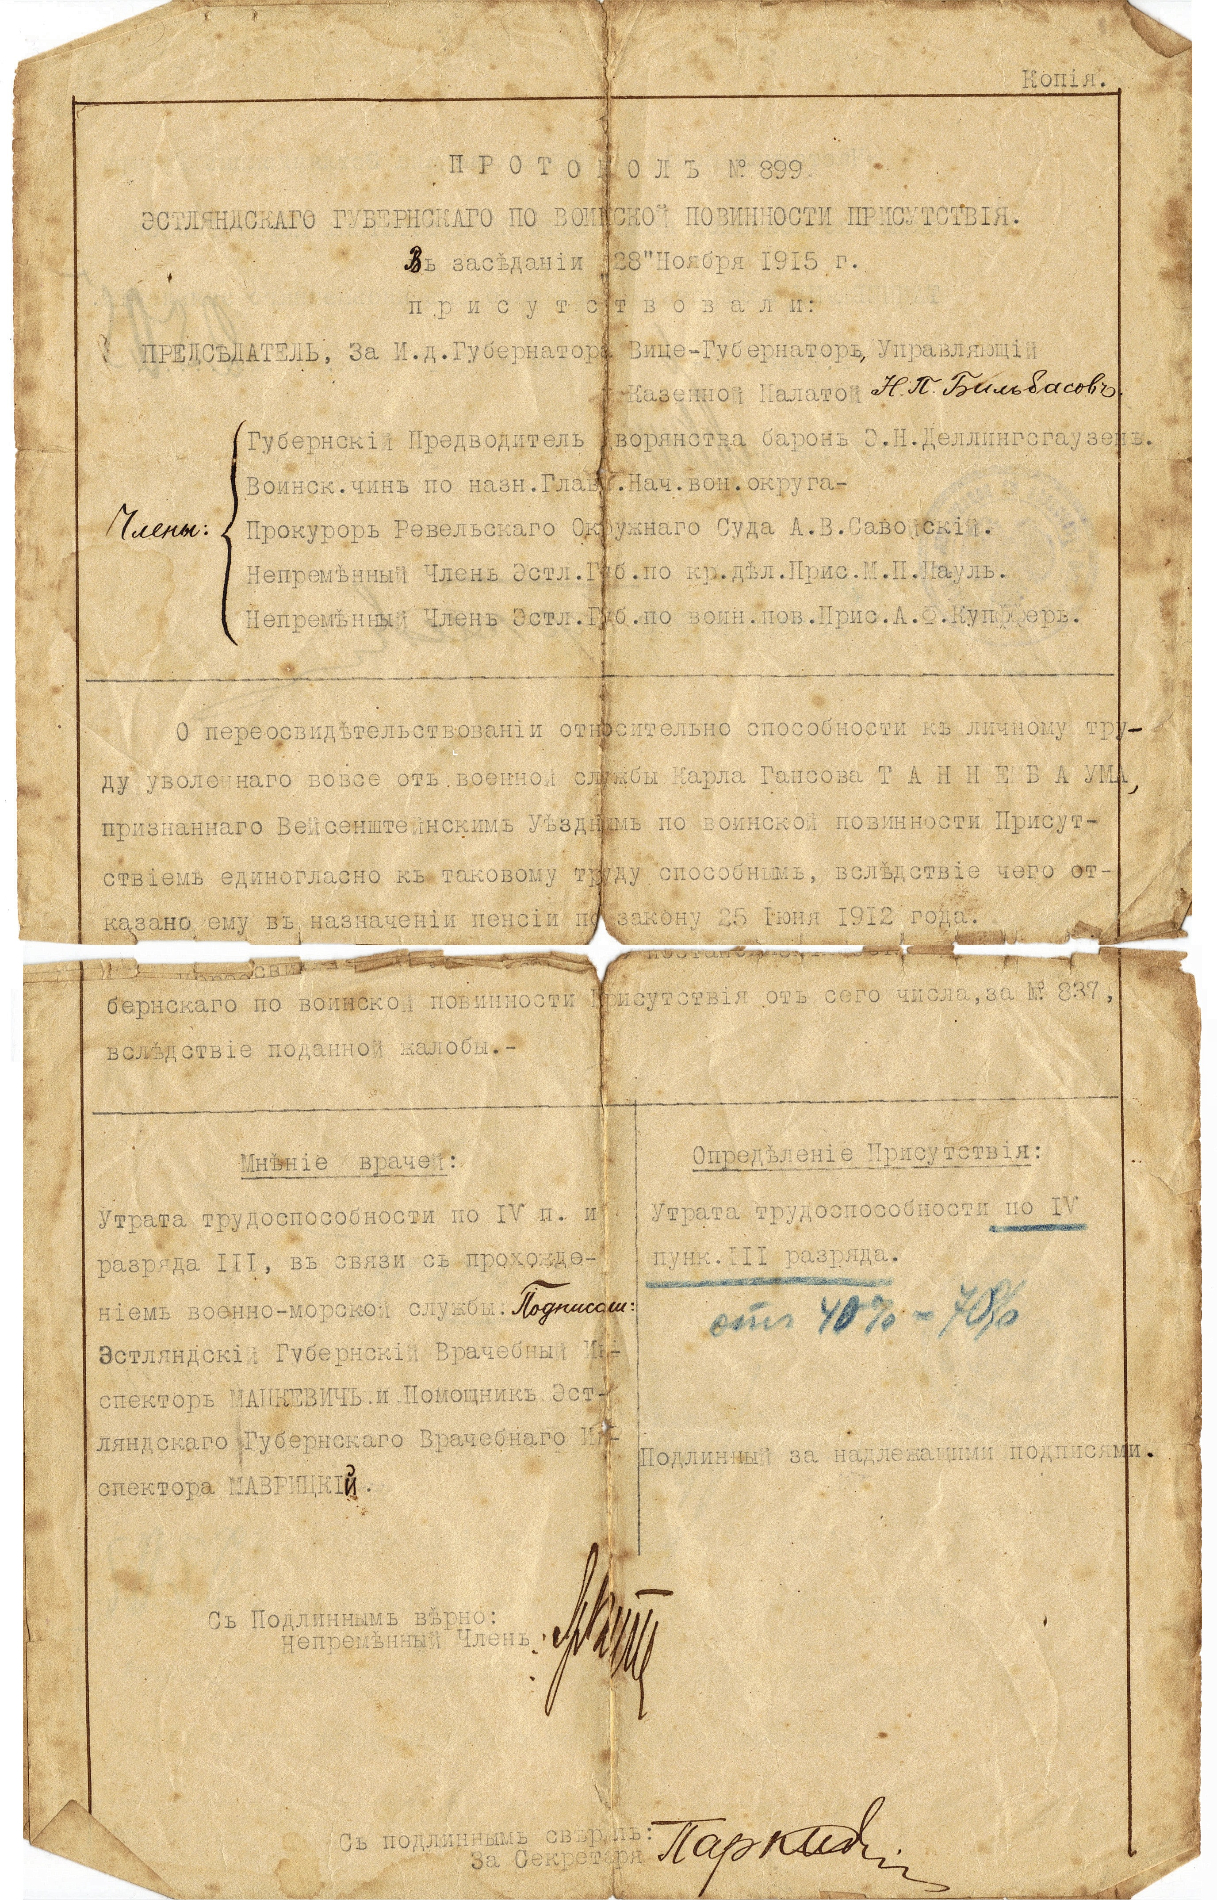 Копія.
ПРОТОКОЛЪ № 899.
ЭСТЛЯНДСКАГО ГУБЕРНСКАГО ПО ВОИНСКОЙ ПОВИННОСТИ ПРИСУТСТВІЯ.
Въ засѣданіи "28" Ноября 1915 г.
присутствовали:
ПРЕДСѢДАТЕЛЬ, За И.д.Губернатора Вице-Губернаторъ, Управляющій
Казенной Палатой Н.П. Бильбасовъ.
Губернскій Предводитель Дворянства баронъ Э.Н.Деллингсгаузенъ.
Воинск.чинъ по назн.Главн.Нач.вон.округа-
Члены:
Прокуроръ Ревельскаго Окружнаго Суда А.В.Савойскій.
Непремѣнный Членъ Эстл.Губ.по кр.дѣл.Прис.М.П.Пауль.
Непремѣнный Членъ Эстл.Губ.по воин.пов.Прис.А.Ф.Купфферъ.
О переосвидѣтельствованіи относительно способности къ личному тру-
ду уволеннаго вовсе отъ военной службы Карла Гансова ТАННЕБАУМА,
признаннаго Вейсенштейнскимъ Уѣзднымъ по воинской повинности Присут-
ствіемъ единогласно къ таковому труду способнымъ, вслѣдствіе чего от-
казано ему въ назначеніи пенсіи по закону 25 Іюня 1912 года.
бернскаго по воинской повинности Присутствія отъ сего числа,за № 837,
вслѣдствіе поданной жалобы.-
Мнѣніе врачей:
Утрата трудоспособности по IV п. и
разряда III, въ связи съ прохожде-
ніемъ военно-морской службы. Подписали:
Эстляндскій Губернскій Врачебный Ин-
спекторъ МАЦКЕВИЧЪ и Помощникъ Эст-
ляндскаго Губернскаго Врачебнаго Ин-
спектора МАВРИЦКІЙ.
Опредѣленіе Присутствія:
Утрата трудоспособности по IV
пунк.III разряда.
отъ 40% - 70%
Подлинный за надлежащими подписями.
Съ Подлиннымъ вѣрно:
Непремѣнный Членъ:
Съ подлиннымъ свѣрялъ:
За Секретаря